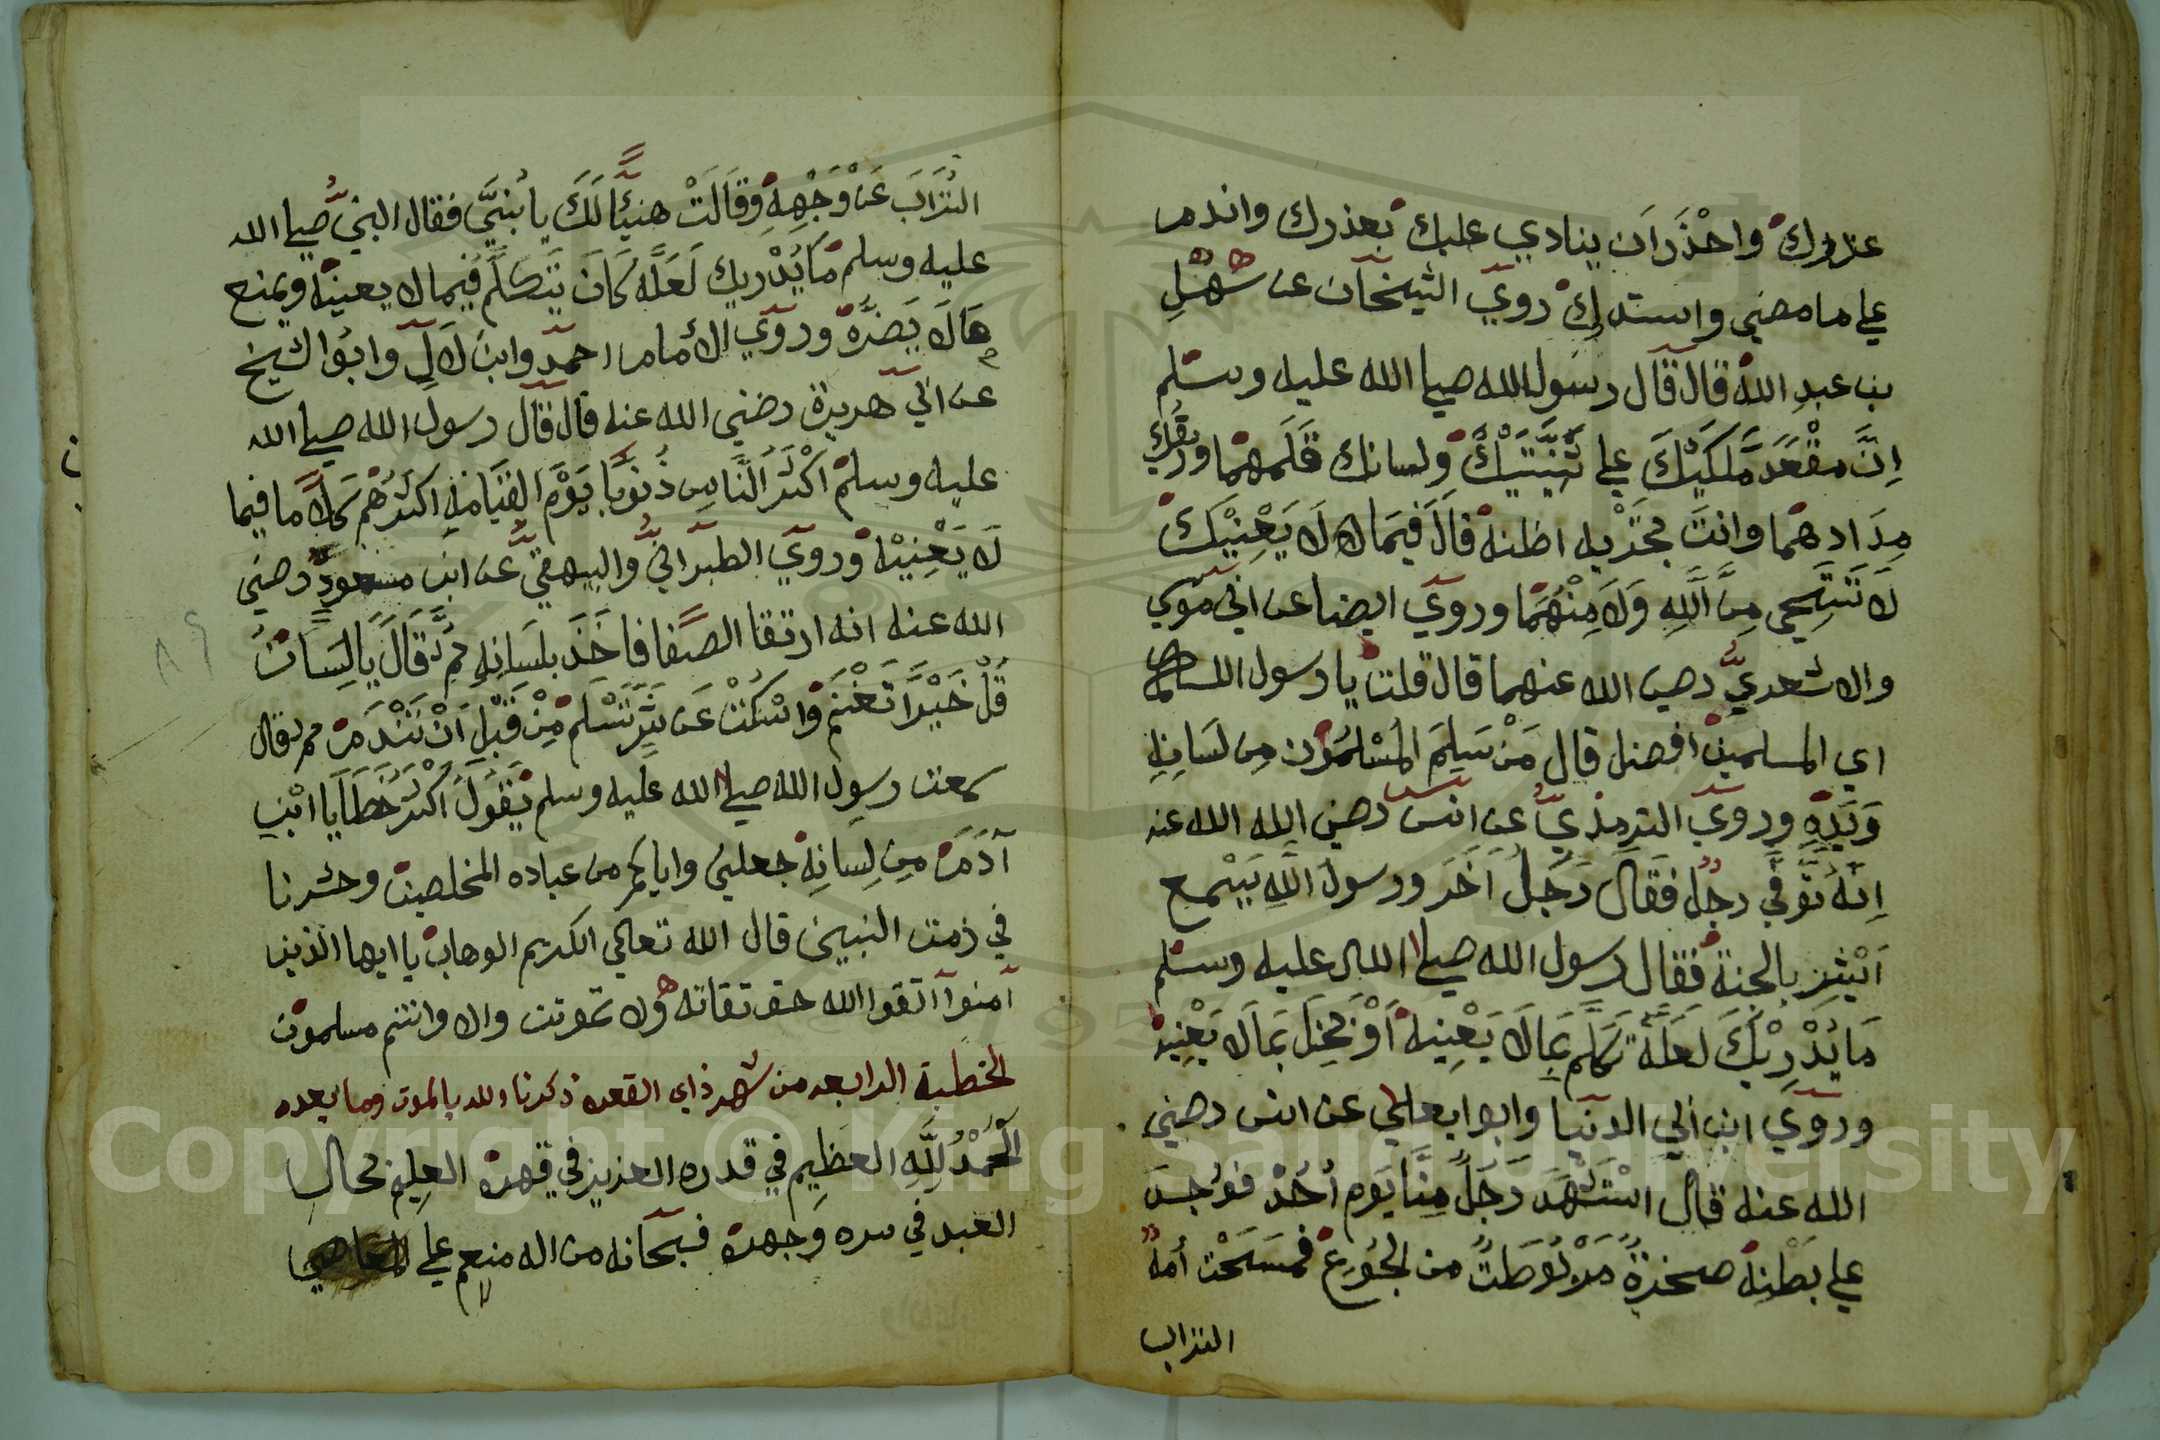 عذرك واحذر ان ينادي عليك بعذرك واندم
علي ما مضي واستدرك روي الشيخان عن سهل
بن عبد الله قال قال رسول الله صلي الله عليه وسلم
اِنَّ مقْعَدَ مَلَكَيْكَ علي ثَنِيَّتَيْكَ ولسانك قَلَمهمَا وريقك
مِدَادهمَا وانتَ تجْزيه اظنه قالَ فِيمَا لا لَا يَعْنِيْكَ
لَا تَسْتَحِي مِنَ اللَّهِ وَلَا مِنْهُمَا وروي ايضا عن ابي موسي
والاشعدي رضي الله عنهما قال قلت يا رسول الله
اي المسلمين افضل قال مَنْ سَلِمَ المُسْلمُون مِن لسَانِهِ
وَيَدِهِ وروي الترمذي عن انس رضي الله الله عنه
اِنَّهُ تُوُفِّي رجُل فقَالَ رَجُلٌ آخَر ورسولُ اللهِ يَسْمع
اَبْشِر بالجنة فقال رسول الله صلي الله عليه وسلم
مَا يُدْرِيْكَ لعَلَّهُ تَكَلَّم بِمَا لَا يَعْنِيهِ اَوْ بَخِلَ بِمَا لَا يَعْنِيْهِ
وروي ابن ابي الدنيا وابوا يعلي عن انس رضي
الله عنه قال اسْتَشْهَدَ رَجُلٌ مِنَّا يَوم اُحُدْ فوُجِدَ
علي بَطْنِهِ صخرةٌ مَرْبُوطَةٌ من الجُوعِ فمَسَحَتْ اُمهُ
التراب
التُرَابَ عَنْ وَجْهِهِ وَقَالَتْ هنيئًا لَكَ يا بُنَيَّ فقال النبي صلي الله
عليه وسلم مَا يُدْرِيك لَعَلَّهُ كَانَ يَتَكَلَّم فيما لا يعينه ويمنع
مَا لَا يَضُرُّهُ وروي الامام احمد وابن لَالِ وابوا الشيخ
عن ابي هريرة رضي الله عنه قال قال رسول الله صلي الله
عليه وسلم اَكْثَرُ النَّاسِ ذُنُوبًا يَوْمَ القِيَامَةِ اكثرُهُم كَلَامًا فيما
لَا يَعْنِيْهِ وروي الطبراني والبيهقي عن ابن مسعود رضي
الله عنه انه ارتقا الصفا فاخَذَ بلسَانِهِ ثُمَّ قَالَ يَا لِسَانُ
قُلْ خَيْرًا تَغْنَم وَاسْكُتْ عَن شَرٍّ تَسْلَم مِنْ قَبْلِ اَنْ تَنْدَمَ ثم قال
سمعت رسول الله صلي الله عليه وسلم يَقُولُ اكْثَرُ خَطَايَا ابْنِ
آدَمَ مِن لِسَانِهِ جعلني واياكم من عباده المخلصين وحشرنا
في زمت النبيين قال الله تعالي الكريم الوهاب يا ايها الذين
آمنوا آتقوا الله حق تقاته ولا تموتن والا وانتم مسلمون
الخطبة الرابعه من شهر ذاي القعده ذكرنا الله بالموت وما بعده
اَلْحَمْدُ لِلَّهِ العَظِيمِ في قدره العزيز في قهره العليم بحال
العبد في سره وجهده فسبحانه من اله منعم علي المعاصي